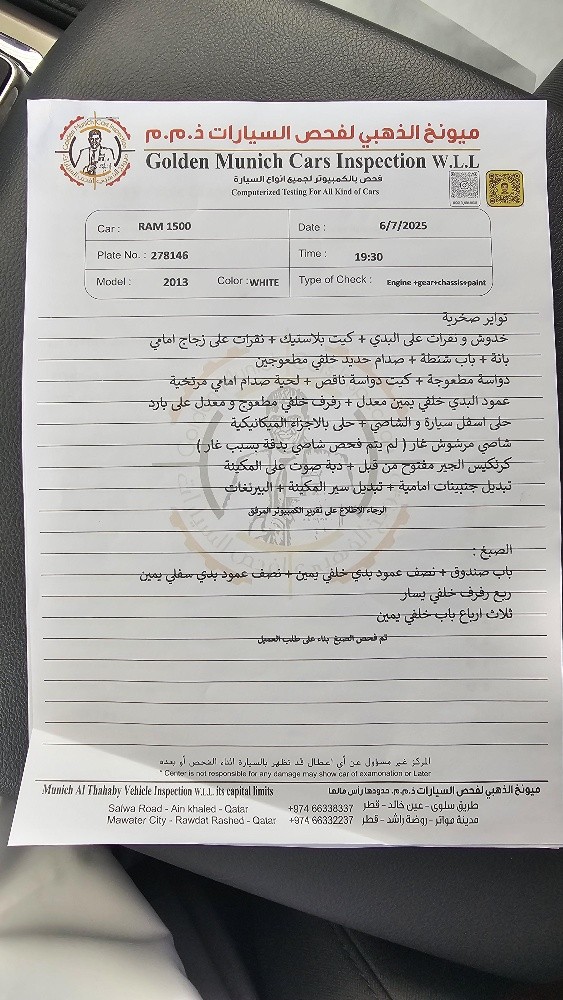 ميونخ الذهبي لفحص السيارات ذ.م.م
Golden Munich Cars Inspection W.L.L
فحص بالكمبيوتر لجميع انواع السيارة
Computerized Testing For All Kind of Cars
Car : RAM 1500 Date : 6/7/2025
Plate No. : 278146 Time : 19:30
Model : 2013 Color : WHITE Type of Check : Engine +gear+chassis+paint
تواير صخرية
خدوش و نقرات على البدي + كيت بلاستيك + نقرات على زجاج امامي
بانة + باب شنطة + صدام حديد خلفي مطعوجين
دواسة مطعوجة + كيت دواسة ناقص + لحية صدام امامي مرتخية
عمود البدي خلفي يمين معدل + رفرف خلفي مطعوج و معدل على بارد
حلى اسفل سيارة و الشاصي + حلى بالاجزاء الميكانيكية
شاصي مرشوش غار ( لم يتم فحص شاصي بدقة بسبب غار )
كرنكيس الجير مفتوح من قبل + دبة صوت على المكينة
تبديل جنبينات امامية + تبديل سير المكينة + البيرنغات
الرجاء الإطلاع على تقرير الكمبيوتر المرفق
الصبغ :
باب صندوق + نصف عمود بدي خلفي يمين + نصف عمود بدي سفلي يمين
ربع رفرف خلفي يسار
ثلاث ارباع باب خلفي يمين
تم فحص الصبغ بناء على طلب العميل
المركز غير مسؤول عن أي اعطال قد تظهر بالسيارة اثناء الفحص أو بعده
* Center is not responsible for any damage may show car of examonation or Later
Munich Al Thahaby Vehicle Inspection W.L.L. its capital limits ميونخ الذهبي لفحص السيارات ذ.م.م. حدودها رأس مالها
Salwa Road - Ain khaled - Qatar +974 66338337 طريق سلوى - عين خالد - قطر
Mawater City - Rawdat Rashed - Qatar +974 66332237 مدينة مواتر - روضة راشد - قطر